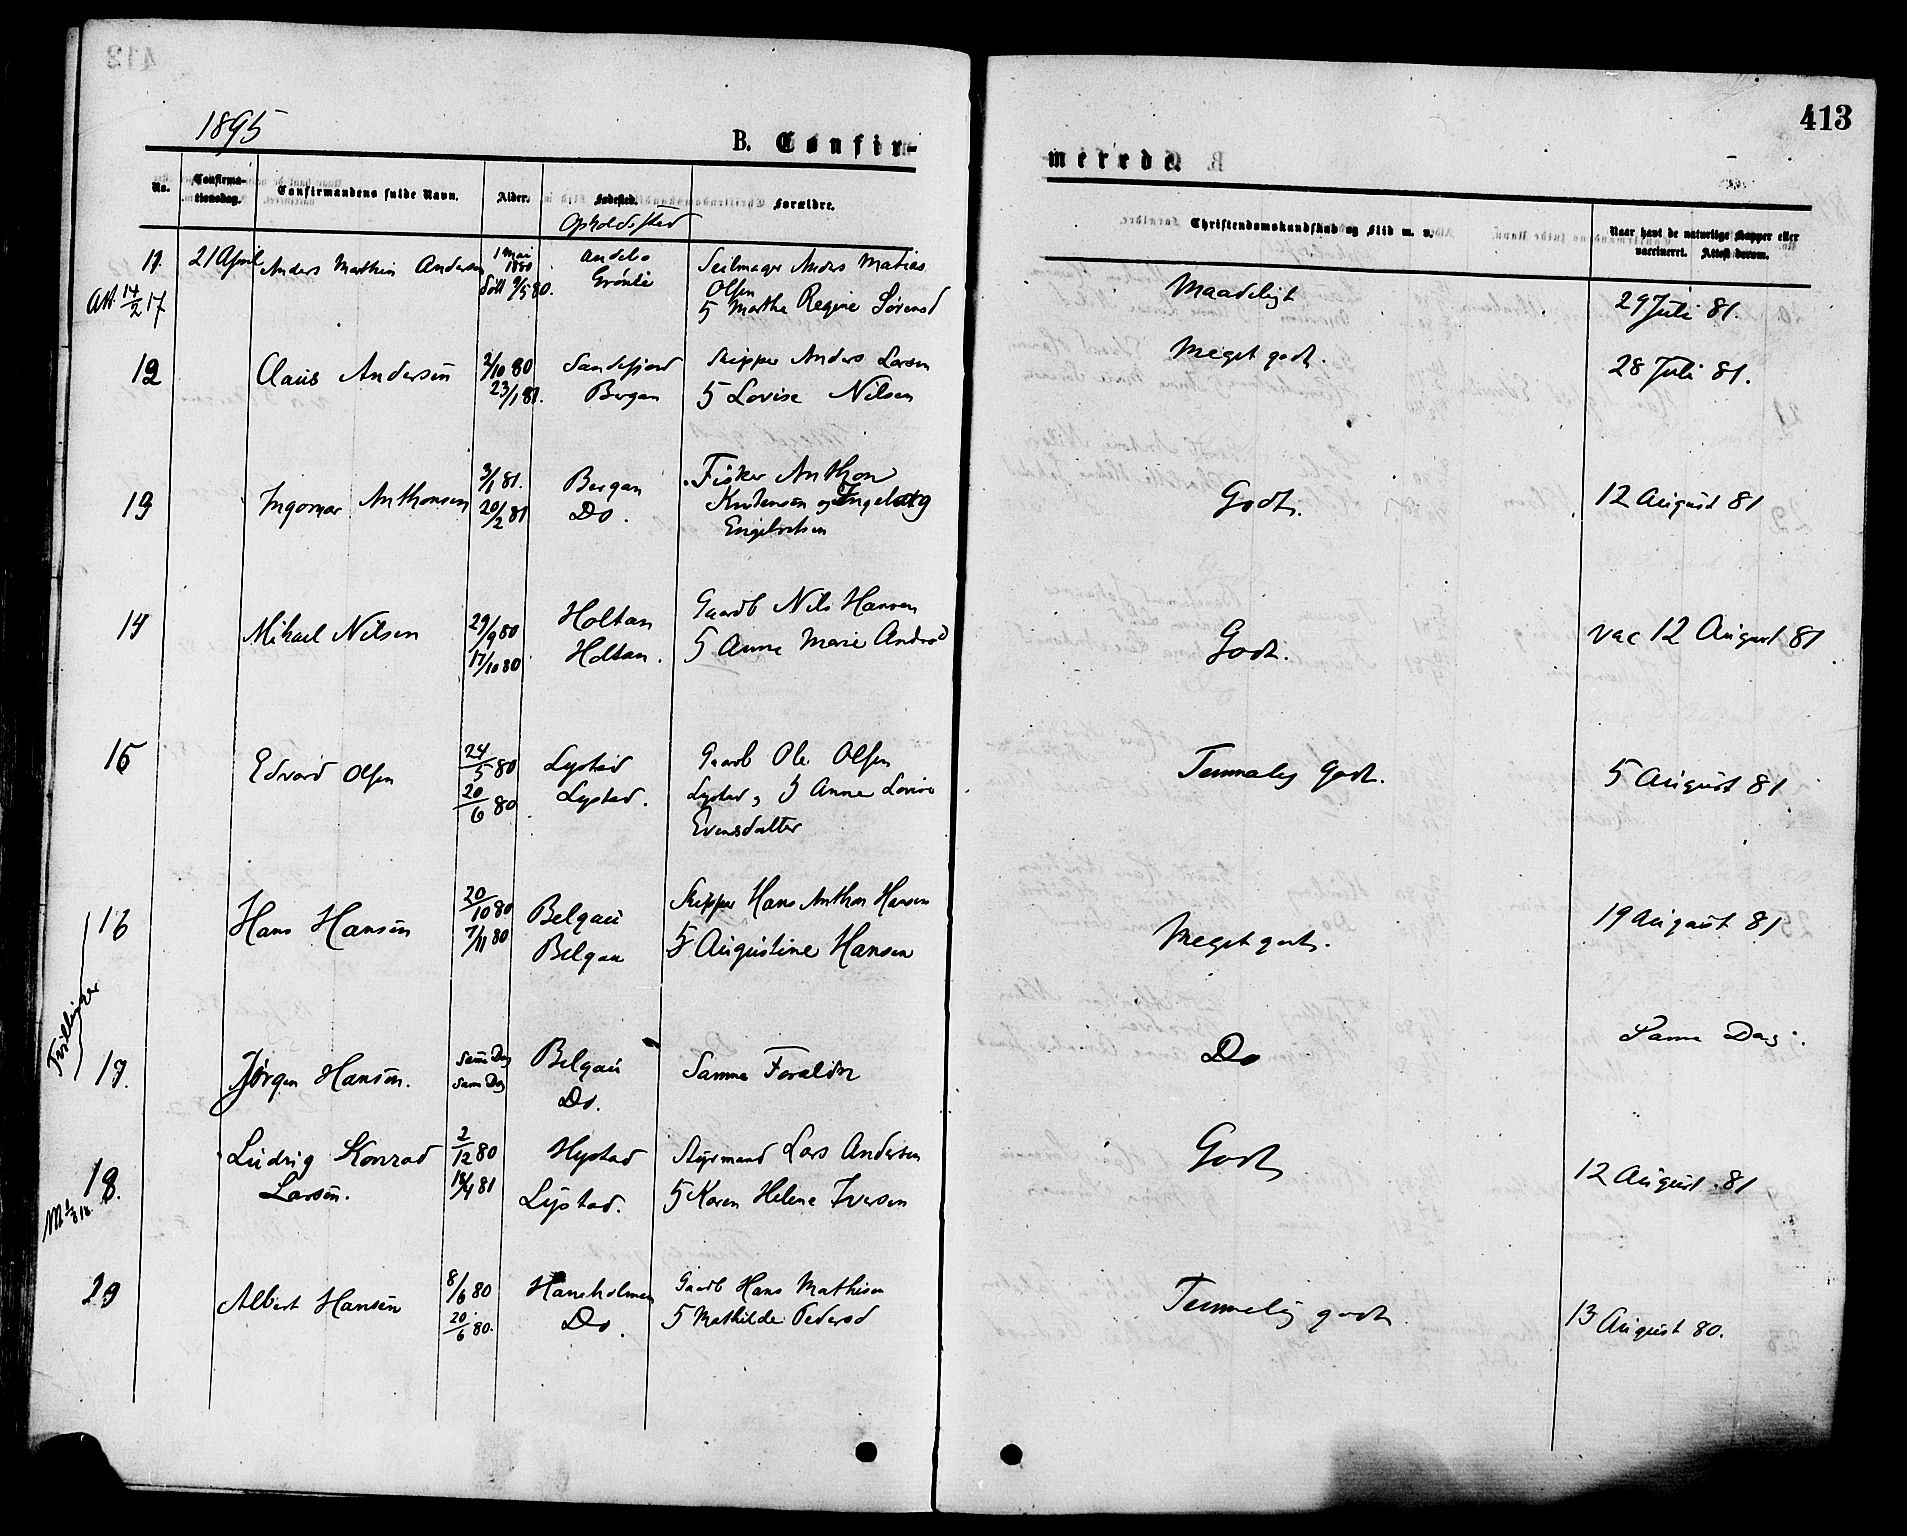 1895
B. Confir-
merede.
413
No.
Confirma-
tionsdag.
Confirmandens fulde Navn.
Alder.
Fødested.
Opholdssted
Forældre.
Christendomskundskab og Flid m. v.
Naar havt de naturlige Kopper eller
vaccineret. Attest derom.
11. 21 April Anders Marthin Andersen 1 Mai 1880 Seilmager Anders Matias
Att 14/2 17 døbt 9/5 80. Olsen
Martha Regine Sørensd
Maadeligt 29 Juli 81.
12 Claus Andersen 2/10 80 Sandefjord Skipper Anders Larsen
23/1 81. Bergan Lovise Nilsen
Meget godt. 28 Juli 81.
13 Ingomar Anthonsen 3/1 81. Bergan Fisker Anthon
20/2 81 Do. Knutensen og Ingeborg
Engebretsen
Godt. 12 August 81
14 Mikael Nilsen 29/9 80 Holtan Gaardb Nils Hansen
17/10 80 Holtan. Anne Marie Andersd
Godt. vac 12 August 81
15 Edvard Olsen 24/5 80 Lystad Gaardb Ole Olsen
20/6 80 Lystad. Lystad, Anne Lovise
Evensdatter
Temmelig Godt. 5 August 81
Tvillinger
16 Hans Hansen 20/10 80 Belgau Skipper Hans Anthon Hansen
7/11 80 Belgau Augustine Hansen
Meget godt. 19 August 81
17. Jørgen Hansen. Samme Dag Belgau Samme Forældre
Samme Dag Do.
Do Samme Dag.
18. Ludvig Konrad 2/12 80 Hystad Styrmand Lars Andersen
Larsen. 18/4 81 Lystad. Karen Helene Iversen
Godt 12 August 81
Albert Hansen 8/6 80 Haneholmen Gaardb Hans Mathisen
20/6 80. Do. Mathilde Pedersd
Temmelig godt. 13 August 80.